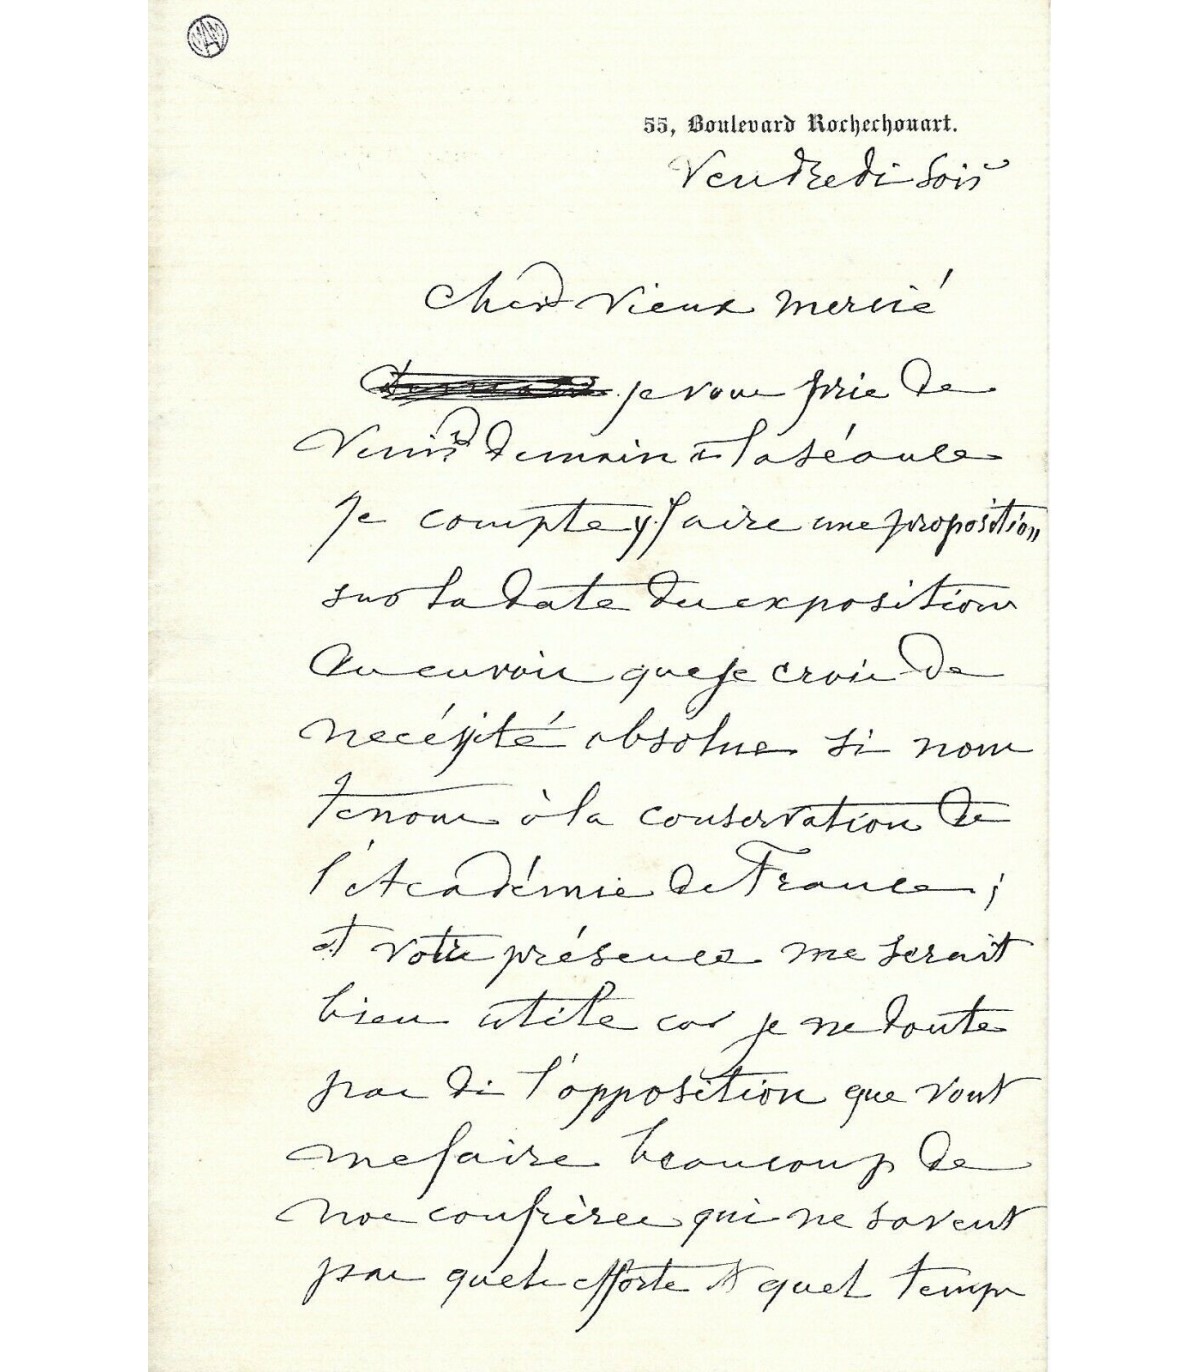 55, Boulevard Rochechouart.
Vendredi soir
Cher vieux Mercié
je vous prie de
venir demain à la séance
je compte y faire une proposition
sur la date du expositions
que je crois de
nécéssité absolue si nous
tenons à la conservation de
l'Académie de France ;
et votre présence me serait
bien utile car je ne doute
pas di l'opposition que vont
me faire beaucoup de
nos confrères qui ne savent
pas quels efforts et quel temps